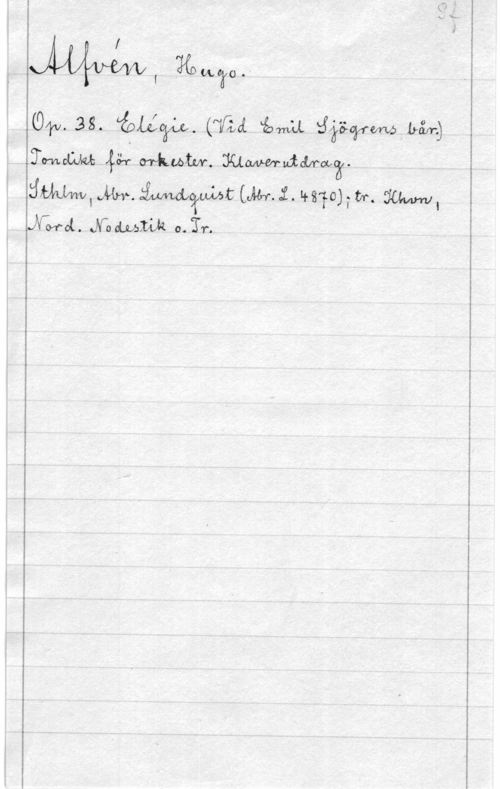 Sf
Alfvén, Hugo.
Op. 38. Elégie. (Vid Emil Sjögrens bår.)
Tondikt för orkester. Klaverutdrag.
Sthlm, Abr. Lundquist (Abr. L. 4870); tr. Khvn,
Nord. Nodestik o. Tr.